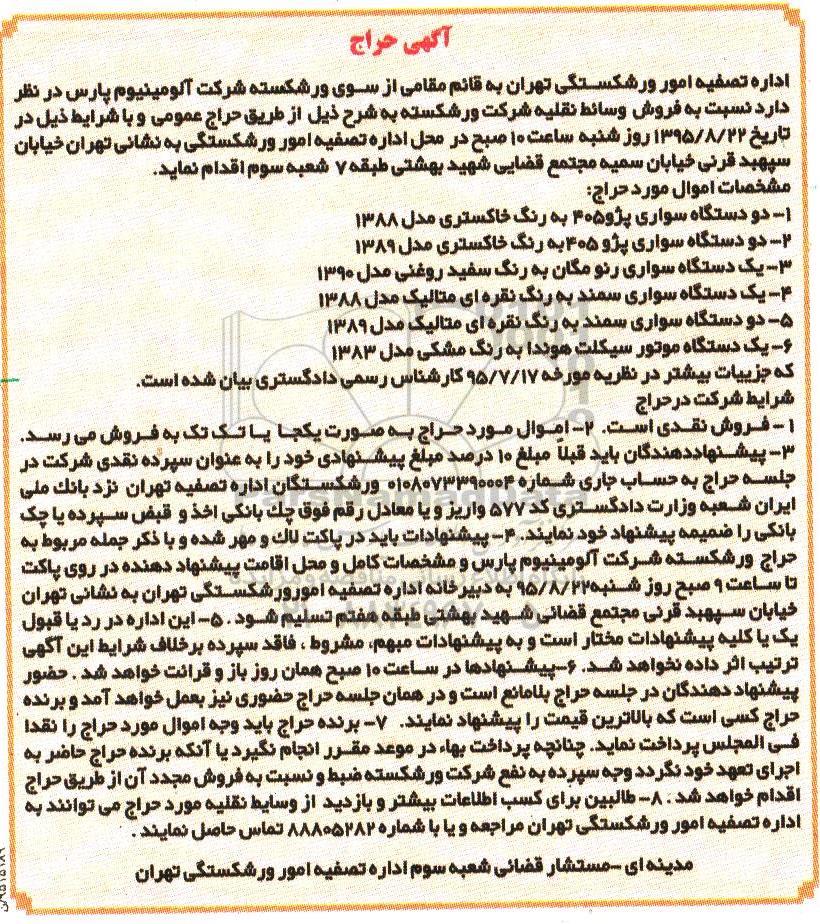 آگهی حراج
اداره تصفیه امور ورشکستگی تهران به قائم مقامی از سوی ورشکسته شرکت آلومینیوم پارس در نظر
دارد نسبت به فروش وسائط نقلیه شرکت ورشکسته به شرح ذیل از طریق حراج عمومی و با شرایط ذیل در
تاریخ ۱۳۹۵/۸/۲۲ روز شنبه ساعت ۱۰ صبح در محل اداره تصفیه امور ورشکستگی به نشانی تهران خیابان
سپهبد قرنی خیابان سمیه مجتمع قضایی شهید بهشتی طبقه ۷ شعبه سوم اقدام نماید.
مشخصات اموال مورد حراج:
۱- دو دستگاه سواری پژو۴۰۵ به رنگ خاکستری مدل ۱۳۸۸
۲- دو دستگاه سواری پژو ۴۰۵به رنگ خاکستری مدل ۱۳۸۹
۳- یک دستگاه سواری رنو مگان به رنگ سفید روغنی مدل ۱۳۹۰
۴- یک دستگاه سواری سمند به رنگ نقره ای متالیک مدل ۱۳۸۸
۵- دو دستگاه سواری سمند به رنگ نقره ای متالیک مدل ۱۳۸۹
۶- یک دستگاه موتور سیکلت هوندا به رنگ مشکی مدل ۱۳۸۳
که جزییات بیشتر در نظریه مورخه ۹۵/۷/۱۷ کارشناس رسمی دادگستری بیان شده است.
شرایط شرکت درحراج
۱- فروش نقدی است. ۲- اموال مورد حراج به صورت یکجا یا تک تک به فروش می رسد.
۳- پیشنهاددهندگان باید قبلاً مبلغ ۱۰ درصد مبلغ پیشنهادی خود را به عنوان سپرده نقدی شرکت در
جلسه حراج به حساب جاری شماره ۰۱۰۸۰۷۳۳۹۰۰۰۴ ورشکستگان اداره تصفیه تهران نزد بانک ملی
ایران شعبه وزارت دادگستری کد ۵۷۷ واریز و یا معادل رقم فوق چک بانکی اخذ و قبض سپرده یا چک
بانکی را ضمیمه پیشنهاد خود نمایند. ۴- پیشنهادات باید در پاکت لاک و مهر شده و با ذکر جمله مربوط به
حراج ورشکسته شرکت آلومینیوم پارس و مشخصات کامل و محل اقامت پیشنهاد دهنده در روی پاکت
تا ساعت ۹ صبح روز شنبه۹۵/۸/۲۲ به دبیرخانه اداره تصفیه امورورشکستگی تهران به نشانی تهران
خیابان سپهبد قرنی مجتمع قضائی شهید بهشتی طبقه هفتم تسلیم شود . ۵- این اداره در رد یا قبول
یک یا کلیه پیشنهادات مختار است و به پیشنهادات مبهم، مشروط ، فاقد سپرده برخلاف شرایط این آگهی
ترتیب اثر داده نخواهد شد. ۶-پیشنهادها در ساعت ۱۰ صبح همان روز باز و قرائت خواهد شد . حضور
پیشنهاد دهندگان در جلسه حراج بلامانع است و در همان جلسه حراج حضوری نیز بعمل خواهد آمد و برنده
حراج کسی است که بالاترین قیمت را پیشنهاد نمایند. ۷- برنده حراج باید وجه اموال مورد حراج را نقدا
فی المجلس پرداخت نماید. چنانچه پرداخت بهاء در موعد مقرر انجام نگیرد یا آنکه برنده حراج حاضر به
اجرای تعهد خود نگردد وجه سپرده به نفع شرکت ورشکسته ضبط و نسبت به فروش مجدد آن از طریق حراج
اقدام خواهد شد . ۸- طالبین برای کسب اطلاعات بیشتر و بازدید از وسایط نقلیه مورد حراج می توانند به
اداره تصفیه امور ورشکستگی تهران مراجعه و یا با شماره ۸۸۸۰۵۲۸۲ تماس حاصل نمایند .
مدینه ای -مستشار قضائی شعبه سوم اداره تصفیه امور ورشکستگی تهران
ParsNamadData